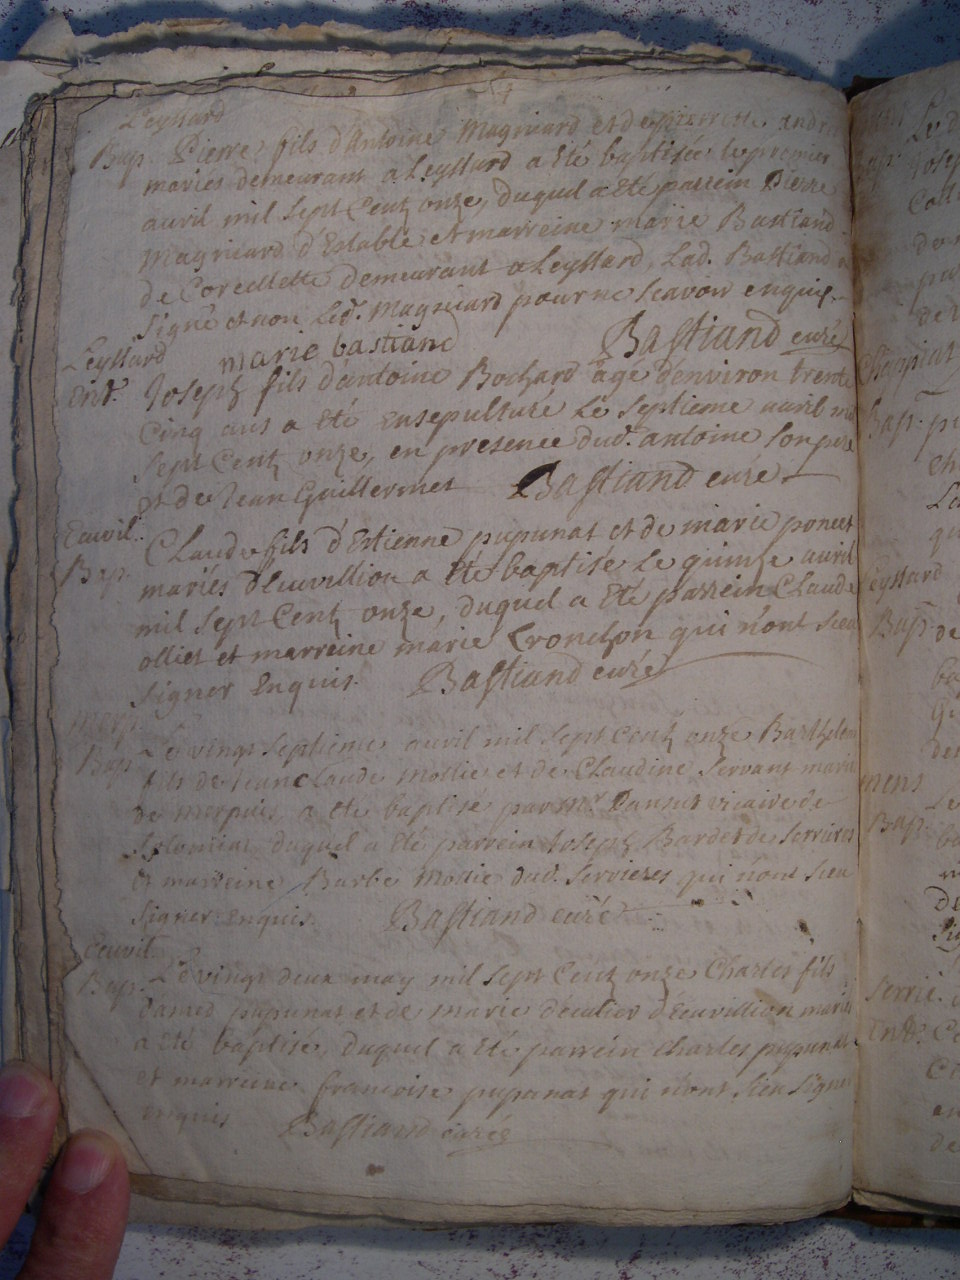 Leyssard
Bap. Pierre fils d'Antoine Magniard et de pierrette andre
mariés demeurant a Leyssard a êté baptisée le premier
auril mil sept Centz onze, duquel a êté parrein Pierre
Magniard d'Estable et marreine marie Bastiand
de Corcellette demeurant a Leyssard, Lad. Bastiand
signé et non Led. Magniard pour ne scavoir enquis.
marie bastiand Bastiand curé
Leyssard
Ent. Joseph fils d'antoine Bochard âgé d'environ trente
Cinq ans a êté Ensepulturé Le septieme auril mil
sept Centz onze, en presence dud. antoine son pere
et de Jean Guillermet Bastiand curé
Ecuvil.
Bap. Claude fils d'Estienne pupunat et de marie poncet
mariés d'Ecuvillion a êté baptisé Le quinze auril
mil sept Centz onze, duquel a êté parrein Claude
olliet et marreine marie Cronchon qui n'ont sceu
signer Enquis. Bastiand curé
Merp.
Bap. Le vingt septieme auril mil sept Centz onze Barthelemi
fils de Jean Claude Mollie et de Claudine Servant mariés
de merpuis a êté baptisé par Mr. vicaire de
Solomiat, duquel a êté parrein Joseph Bardet de Serrieres
et marreine Barbe Mollie dud. Serrieres qui n'ont sceu
signer Enquis. Bastiand curé
Ecuvil.
Bap. Le vingt deux may mil sept Centz onze Charles fils
d'amed pupunat et de marie d'Ecuvillion mariés
a êté baptisé, duquel a êté parrein Charles pupunat
et marreine francoise pupunat qui n'ont sceu signer
enquis Bastiand curé
Leyssard
Bap.
mens
Bap.
Serrie.
Ent.